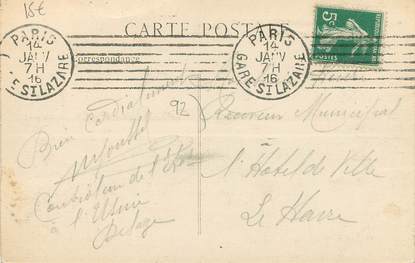 15€
CARTE POSTALE
Correspondance
PARIS
14
JANV
7 H
16
GARE ST LAZARE
PARIS
14
JANV
7 H
16
GARE ST LAZARE
5c
POSTES
92
Bien Cordialement
Contrôleur de
à l'Usine
Receveur Municipal
à l'Hôtel de Ville
Le Havre